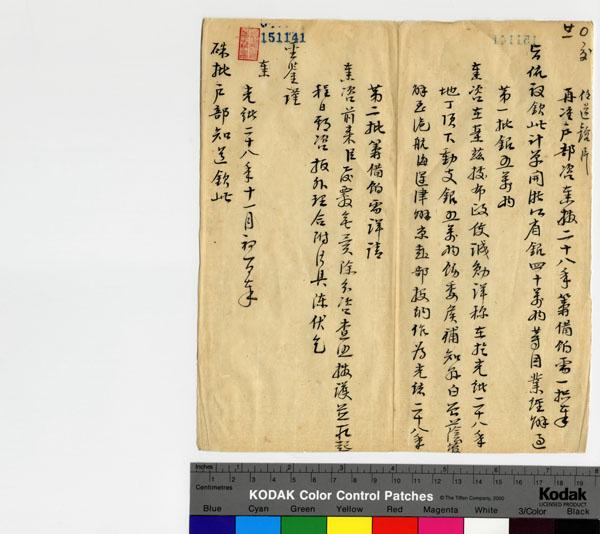 151141
再准戶部咨奏撥二十八年籌備餉需一摺奉
旨依議欽此計單開浙江省銀四十萬兩等因業經解過
第一批銀五萬兩
奏咨在案茲據布政使誠勳詳稱在於光緒二十八年
地丁項下動支銀五萬兩飭委候補知縣白
解至滬航海運津解京赴部投納作為光緒二十八年
第二批籌備餉需詳請
奏咨前來臣覆核無異除分咨查照
程日期咨報外理合附片具陳伏乞
聖鑒謹
奏
光緒二十八年十一月初 日奉
硃批戶部知道欽此
Inches 1 2 3 4 5 6 7 8
Centimetres
KODAK Color Control Patches
© The Tiffen Company, 2000
Kodak
LICENSED PRODUCT
Blue Cyan Green Yellow Red Magenta White 3/Color Black